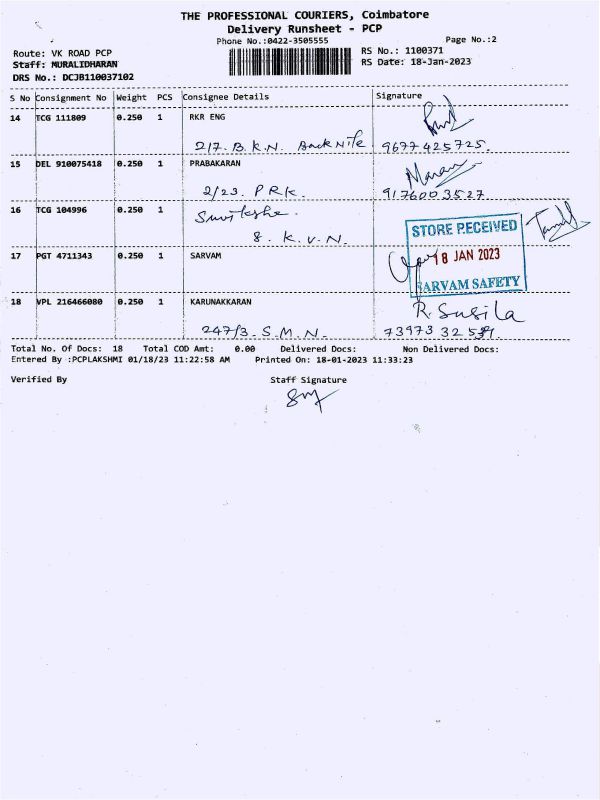 THE PROFESSIONAL COURIERS, Coimbatore
Delivery Runsheet - PCP
Phone No.:0422-3505555
Page No.:2
Route: VK ROAD PCP
RS No.: 1100371
Staff: MURALIDHARAN
RS Date: 18-Jan-2023
DRS No.: DCJB110037102
S No Consignment No Weight PCS Consignee Details Signature
14 TCG 111809 0.250 1 RKR ENG
217. B.K.N. 9677425725.
15 DEL 910075418 0.250 1 PRABAKARAN Maran
2/23. P R K. 9176003527
16 TCG 104996 0.250 1
8. K.V.N.
STORE RECEIVED
17 PGT 4711343 0.250 1 SARVAM
18 JAN 2023
SARVAM SAFETY
18 VPL 216466080 0.250 1 KARUNAKKARAN R. Susila
247/3. S.M.N. 73973 32
Total No. Of Docs: 18 Total COD Amt: 0.00 Delivered Docs: Non Delivered Docs:
Entered By :PCPLAKSHMI 01/18/23 11:22:58 AM Printed On: 18-01-2023 11:33:23
Verified By Staff Signature